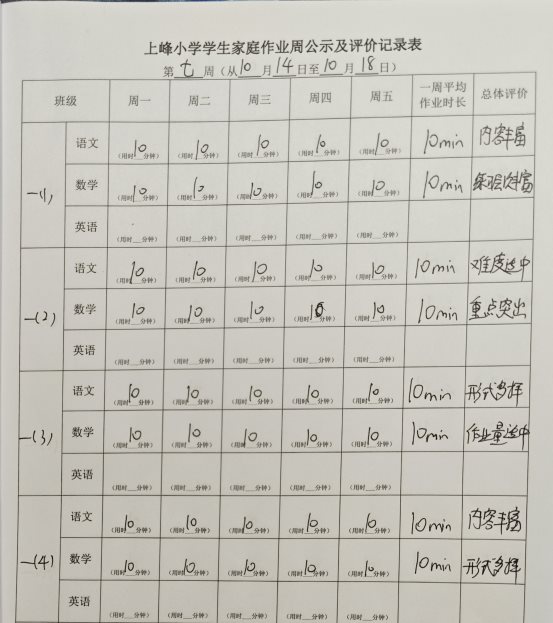 上峰小学学生家庭作业周公示及评价记录表
第 七 周（从 10 月 14 日至 10 月 18 日）
班级 周一 周二 周三 周四 周五 一周平均作业时长 总体评价
一(1) 语文 （用时 10 分钟） （用时 10 分钟） （用时 10 分钟） （用时 10 分钟） （用时 10 分钟） 10min 内容丰富
数学 （用时 10 分钟） （用时 10 分钟） （用时 10 分钟） （用时 10 分钟） （用时 10 分钟） 10min 丰富
英语 （用时 分钟） （用时 分钟） （用时 分钟） （用时 分钟） （用时 分钟）
一(2) 语文 （用时 10 分钟） （用时 10 分钟） （用时 10 分钟） （用时 10 分钟） （用时 10 分钟） 10min 难度适中
数学 （用时 10 分钟） （用时 10 分钟） （用时 10 分钟） （用时 10 分钟） （用时 10 分钟） 10min 重点突出
英语 （用时 分钟） （用时 分钟） （用时 分钟） （用时 分钟） （用时 分钟）
一(3) 语文 （用时 10 分钟） （用时 10 分钟） （用时 10 分钟） （用时 10 分钟） （用时 10 分钟） 10min 形式多样
数学 （用时 10 分钟） （用时 10 分钟） （用时 10 分钟） （用时 10 分钟） （用时 10 分钟） 10min 作业量适中
英语 （用时 分钟） （用时 分钟） （用时 分钟） （用时 分钟） （用时 分钟）
一(4) 语文 （用时 10 分钟） （用时 10 分钟） （用时 10 分钟） （用时 10 分钟） （用时 10 分钟） 10min 内容丰富
数学 （用时 10 分钟） （用时 10 分钟） （用时 10 分钟） （用时 10 分钟） （用时 10 分钟） 10min 形式多样
英语 （用时 分钟） （用时 分钟） （用时 分钟） （用时 分钟） （用时 分钟）